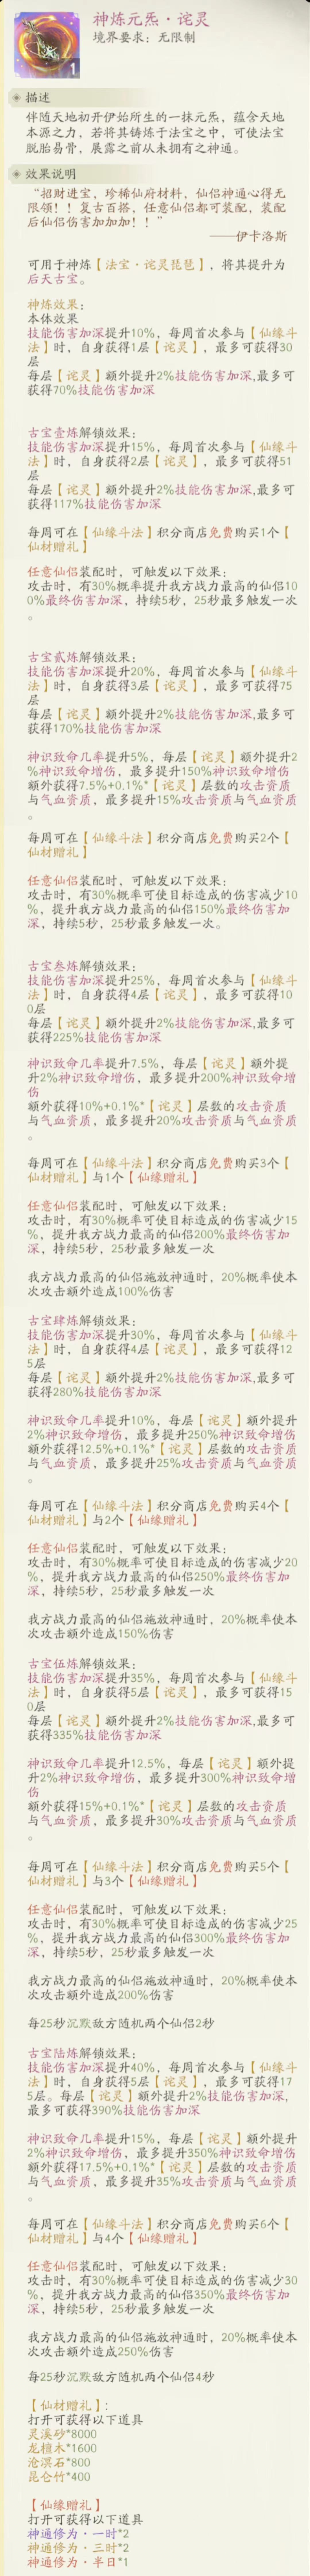 神炼元炁·诧灵
境界要求：无限制
1
描述
伴随天地初开伊始所生的一抹元炁，蕴含天地
本源之力，若将其铸炼于法宝之中，可使法宝
脱胎易骨，展露之前从未拥有之神通。
效果说明
“招财进宝，珍稀仙府材料，仙侣神通心得无
限领！！复古百搭，任意仙侣都可装配，装配
后仙侣伤害加加加！！”
——伊卡洛斯
可用于神炼【法宝·诧灵琵琶】，将其提升为
后天古宝。
神炼效果：
本体效果
技能伤害加深提升10%，每周首次参与【仙缘斗
法】时，自身获得1层【诧灵】，最多可获得30
层
每层【诧灵】额外提升2%技能伤害加深,最多可
获得70%技能伤害加深
古宝壹炼解锁效果：
技能伤害加深提升15%，每周首次参与【仙缘斗
法】时，自身获得2层【诧灵】，最多可获得51
层
每层【诧灵】额外提升2%技能伤害加深,最多可
获得117%技能伤害加深
每周可在【仙缘斗法】积分商店免费购买1个【
仙材赠礼】
任意仙侣装配时，可触发以下效果：
攻击时，有30%概率提升我方战力最高的仙侣10
0%最终伤害加深，持续5秒，25秒最多触发一次
。
古宝贰炼解锁效果：
技能伤害加深提升20%，每周首次参与【仙缘斗
法】时，自身获得3层【诧灵】，最多可获得75
层
每层【诧灵】额外提升2%技能伤害加深,最多可
获得170%技能伤害加深
神识致命几率提升5%，每层【诧灵】额外提升2
%神识致命增伤，最多提升150%神识致命增伤
额外获得7.5%+0.1%*【诧灵】层数的攻击资质
与气血资质，最多提升15%攻击资质与气血资质
。
每周可在【仙缘斗法】积分商店免费购买2个【
仙材赠礼】
任意仙侣装配时，可触发以下效果：
攻击时，有30%概率可使目标造成的伤害减少10
%，提升我方战力最高的仙侣150%最终伤害加
深，持续5秒，25秒最多触发一次。
古宝叁炼解锁效果：
技能伤害加深提升25%，每周首次参与【仙缘斗
法】时，自身获得4层【诧灵】，最多可获得10
0层
每层【诧灵】额外提升2%技能伤害加深,最多可
获得225%技能伤害加深
神识致命几率提升7.5%，每层【诧灵】额外提
升2%神识致命增伤，最多提升200%神识致命增
伤
额外获得10%+0.1%*【诧灵】层数的攻击资质
与气血资质，最多提升20%攻击资质与气血资质
。
每周可在【仙缘斗法】积分商店免费购买3个【
仙材赠礼】与1个【仙缘赠礼】
任意仙侣装配时，可触发以下效果：
攻击时，有30%概率可使目标造成的伤害减少15
%，提升我方战力最高的仙侣200%最终伤害加
深，持续5秒，25秒最多触发一次
我方战力最高的仙侣施放神通时，20%概率使本
次攻击额外造成100%伤害
古宝肆炼解锁效果：
技能伤害加深提升30%，每周首次参与【仙缘斗
法】时，自身获得4层【诧灵】，最多可获得12
5层
每层【诧灵】额外提升2%技能伤害加深,最多可
获得280%技能伤害加深
神识致命几率提升10%，每层【诧灵】额外提升
2%神识致命增伤，最多提升250%神识致命增伤
额外获得12.5%+0.1%*【诧灵】层数的攻击资
质与气血资质，最多提升25%攻击资质与气血资质
。
每周可在【仙缘斗法】积分商店免费购买4个【
仙材赠礼】与2个【仙缘赠礼】
任意仙侣装配时，可触发以下效果：
攻击时，有30%概率可使目标造成的伤害减少20
%，提升我方战力最高的仙侣250%最终伤害加
深，持续5秒，25秒最多触发一次
我方战力最高的仙侣施放神通时，20%概率使本
次攻击额外造成150%伤害
古宝伍炼解锁效果：
技能伤害加深提升35%，每周首次参与【仙缘斗
法】时，自身获得5层【诧灵】，最多可获得15
0层
每层【诧灵】额外提升2%技能伤害加深,最多可
获得335%技能伤害加深
神识致命几率提升12.5%，每层【诧灵】额外提
升2%神识致命增伤，最多提升300%神识致命增
伤
额外获得15%+0.1%*【诧灵】层数的攻击资质
与气血资质，最多提升30%攻击资质与气血资质
。
每周可在【仙缘斗法】积分商店免费购买5个【
仙材赠礼】与3个【仙缘赠礼】
任意仙侣装配时，可触发以下效果：
攻击时，有30%概率可使目标造成的伤害减少25
%，提升我方战力最高的仙侣300%最终伤害加
深，持续5秒，25秒最多触发一次
我方战力最高的仙侣施放神通时，20%概率使本
次攻击额外造成200%伤害
每25秒沉默敌方随机两个仙侣2秒
古宝陆炼解锁效果：
技能伤害加深提升40%，每周首次参与【仙缘斗
法】时，自身获得5层【诧灵】，最多可获得17
5层。每层【诧灵】额外提升2%技能伤害加深,
最多可获得390%技能伤害加深
神识致命几率提升15%，每层【诧灵】额外提升
2%神识致命增伤，最多提升350%神识致命增伤
额外获得17.5%+0.1%*【诧灵】层数的攻击资质
与气血资质，最多提升35%攻击资质与气血资质
。
每周可在【仙缘斗法】积分商店免费购买6个【
仙材赠礼】与4个【仙缘赠礼】
任意仙侣装配时，可触发以下效果：
攻击时，有30%概率可使目标造成的伤害减少30
%，提升我方战力最高的仙侣350%最终伤害加
深，持续5秒，25秒最多触发一次
我方战力最高的仙侣施放神通时，20%概率使本
次攻击额外造成250%伤害
每25秒沉默敌方随机两个仙侣4秒
【仙材赠礼】:
打开可获得以下道具
灵溪砂*8000
龙檀木*1600
沧溟石*800
昆仑竹*400
【仙缘赠礼】
打开可获得以下道具
神通修为·一时*2
神通修为·三时*2
神通修为·半日*1